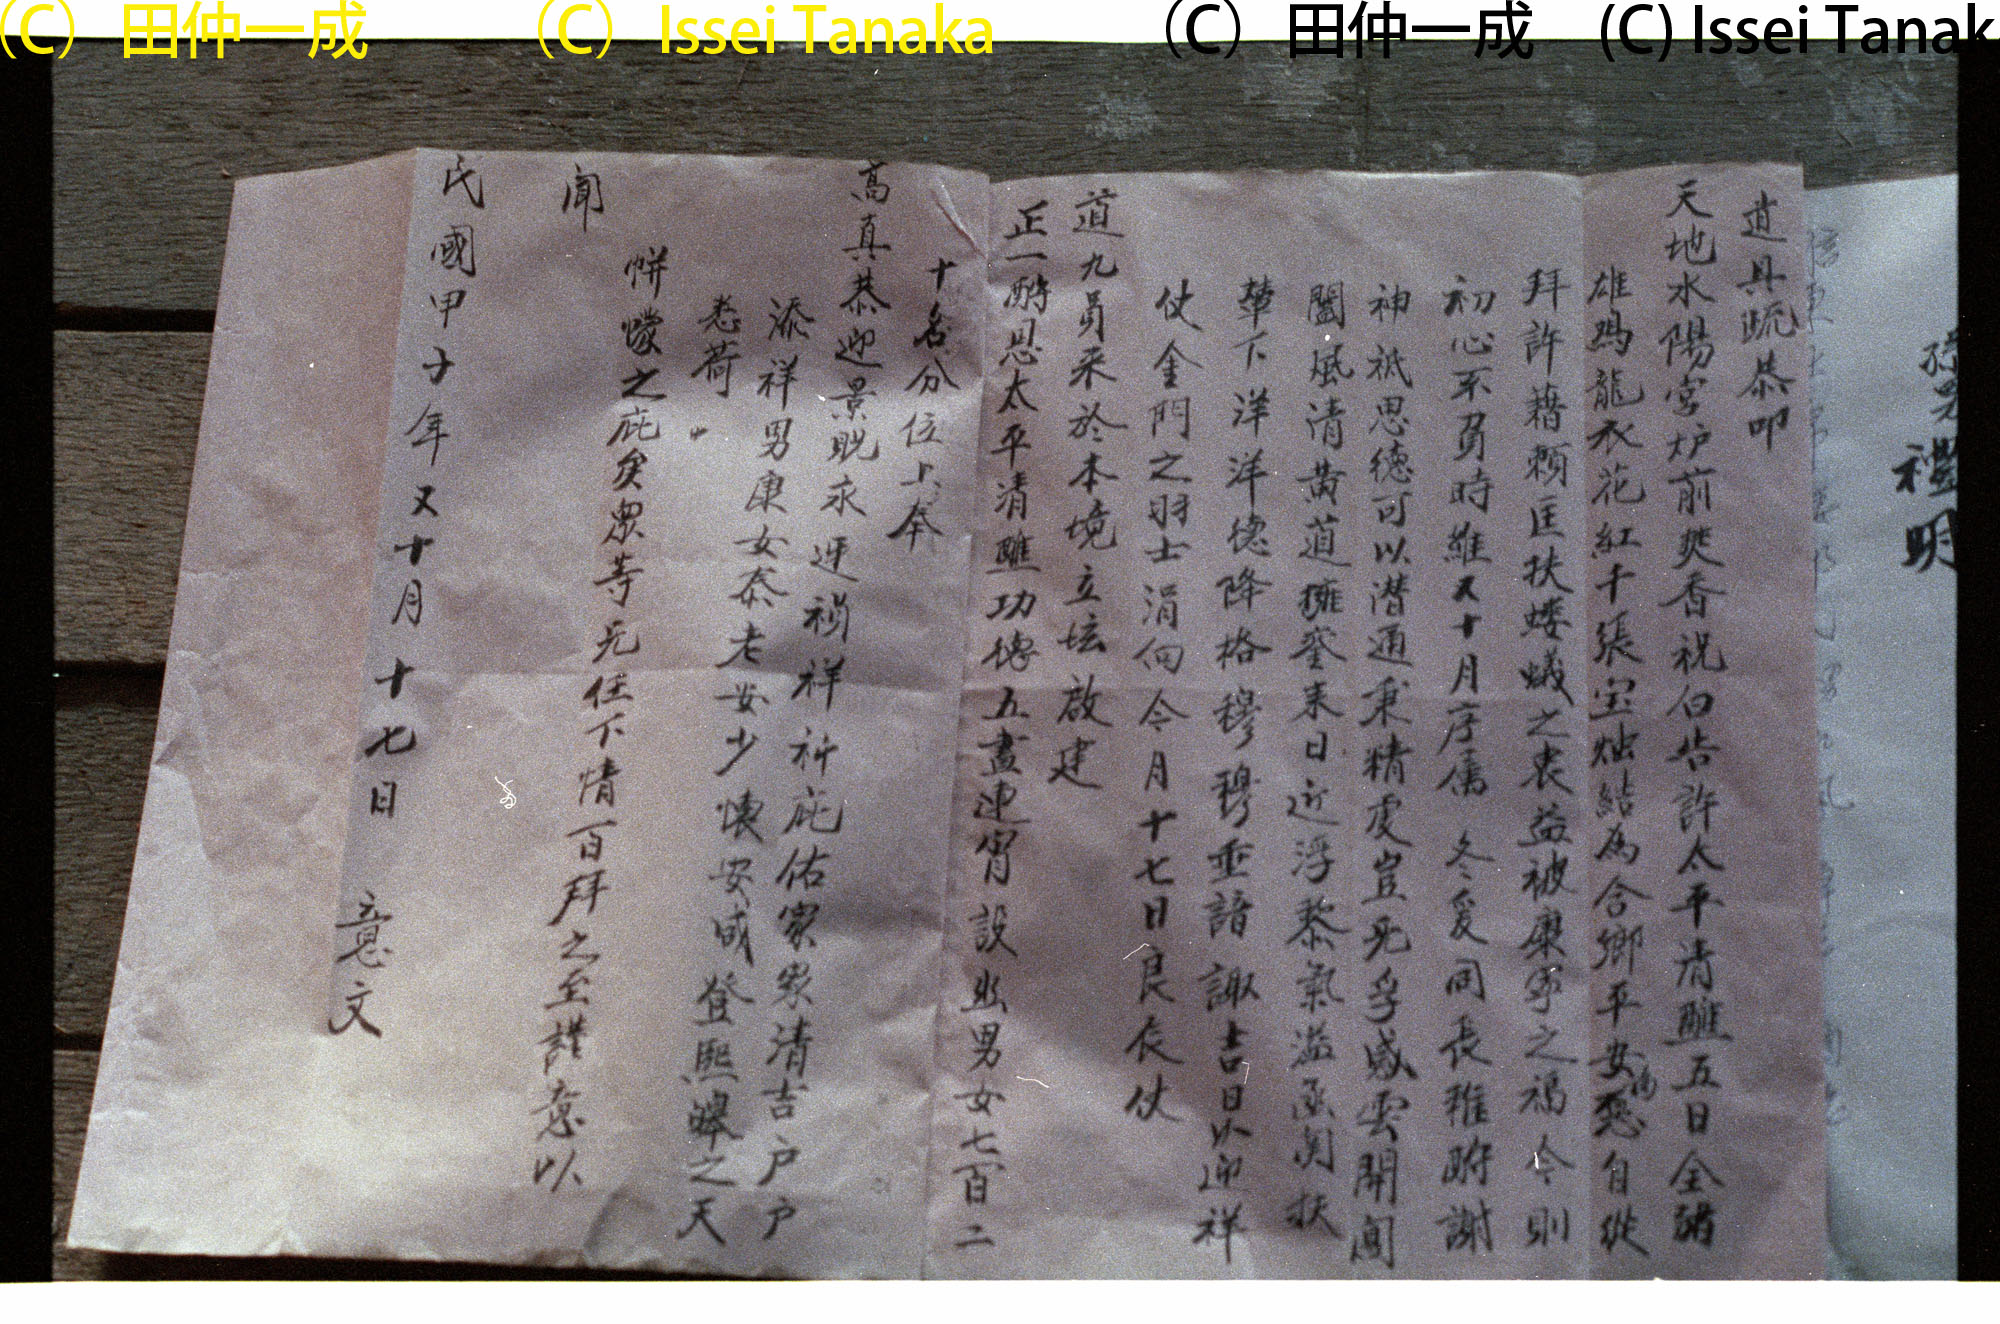 (C) 田仲一成 (C) Issei Tanaka (C) 田仲一成 (C) Issei Tanak
禮明
道具疏恭叩
天地水陽宮炉前焚香祝白告許太平清醮五日全豬
雄鸡龍衣花紅千張宝烛結為合鄉平安 自從
拜許藉賴匡扶蝼蟻之衷益被康寧之福今則
初心不負時維又十月序属冬爰同長稚酧謝
神祇思德可以潜通秉精虔豈死孚感雲開閶
闔風清黄道擁鑾来日近浮黎氣溢函関扶
輦下洋洋德降格穆穆垂諳諏吉日以迎祥
仗金門之羽士涓向今月十七日良辰仗
道九員来於本境立坛啟建
正一酧恩太平清醮功德五晝連宵設出男女七百二
十名分位上奉
高真恭迎景貺永迓禎祥祈庇佑家家清吉户户
添祥男康女泰老安少懷安咸登熙皞之天
悉荷
帡幪之庇矣眾等无任下情百拜之至謹意以
聞
民國甲子年又十月十七日 意文